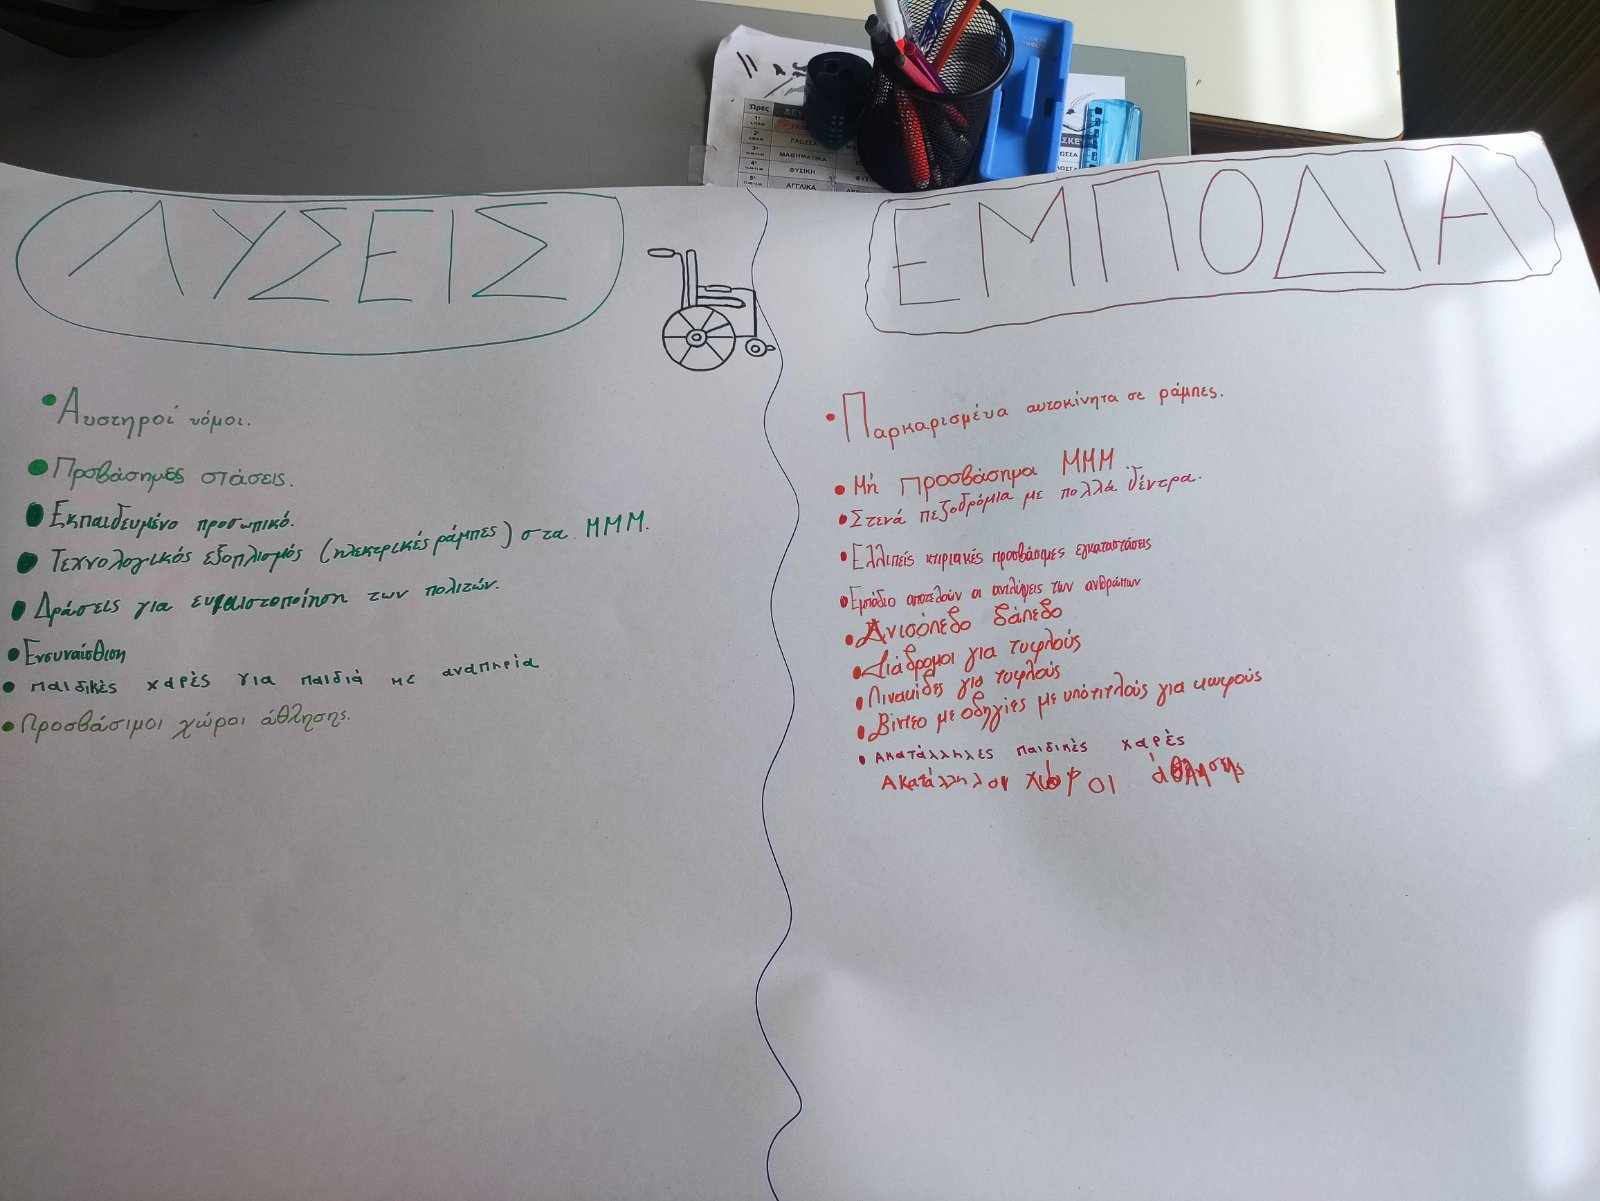 Ώρες
ΓΛΩΣΣΑ
ΜΑΘΗΜΑΤΙΚΑ
ΦΥΣΙΚΗ
ΑΓΓΛΙΚΑ
ΛΥΣΕΙΣ
• Αυστηροί νόμοι.
• Προβάσημες στάσεις.
• Εκπαιδευμένο προσωπικό.
• Τεχνολογικός εξοπλισμός (ηλεκτρικές ράμπες) στα ΜΜΜ.
• Δράσεις για ευαιστοποίηση των πολιτών.
• Ενσυναίσθιση
• παιδικές χαρές για παιδιά με αναπηρία
• Προσβάσιμοι χώροι άθλησης.
ΕΜΠΟΔΙΑ
• Παρκαρισμένα αυτοκίνητα σε ράμπες.
• Μή προσβάσημα ΜΜΜ
• Στενά πεζοδρόμια με πολλά δέντρα.
• Ελλιπείς κτιριακές προσβάσιμες εγκαταστάσεις
• Εμπόδιο αποτελούν οι αντιλήψεις των ανθρώπων
• Ανισόπεδο δάπεδο
• Διάδρομοι για τυφλούς
• Πινακίδες για τυφλούς
• Βίντεο με οδηγίες με υπότιτλούς για κωφούς
• Ακατάλληλες παιδικές χαρές
Ακατάλληλοι χώροι άθλησης